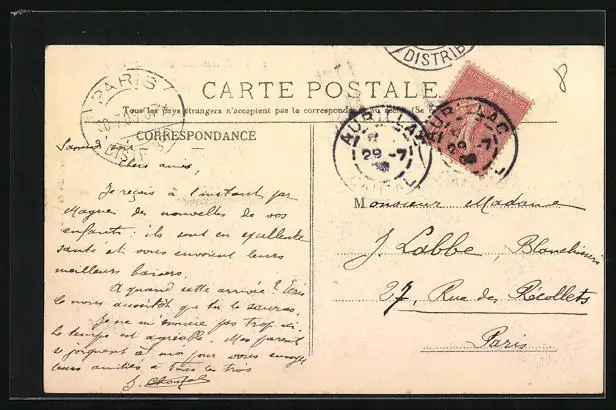 DISTRIB
PARIS
8
CARTE POSTALE
Tous les pays étrangers n'acceptent pas la correspondance au
CORRESPONDANCE
AURILLAC
29 -7
CANTAL
AURILLAC
29 -7
Samedi soir
Chers amis,
Je reçois à l'instant par
Magne des nouvelles de vos
enfants : ils sont en excellente
santé et vous envoient leurs
meilleurs baisers.
A quand cette arrivée ? Ecris
le nous aussitôt que tu le sauras.
Je ne m'ennuie pas trop ici.
Le temps est agréable. Mes parents
se joignent à moi pour vous envoyer
leurs amitiés à tous les trois
J.
Monsieur Madame
J. Labbe, Blanchisseurs
27, Rue des Récollets
Paris